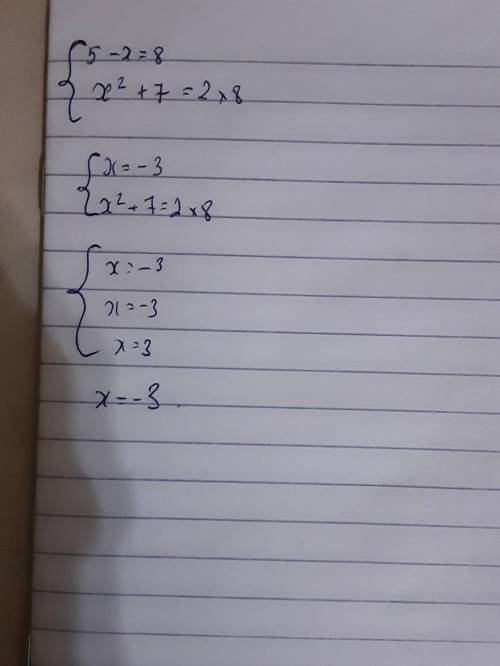 5 - x = 8
x² + 7 = 2 × 8
x = -3
x² + 7 = 2 × 8
x = -3
x = -3
x = 3
x = -3.